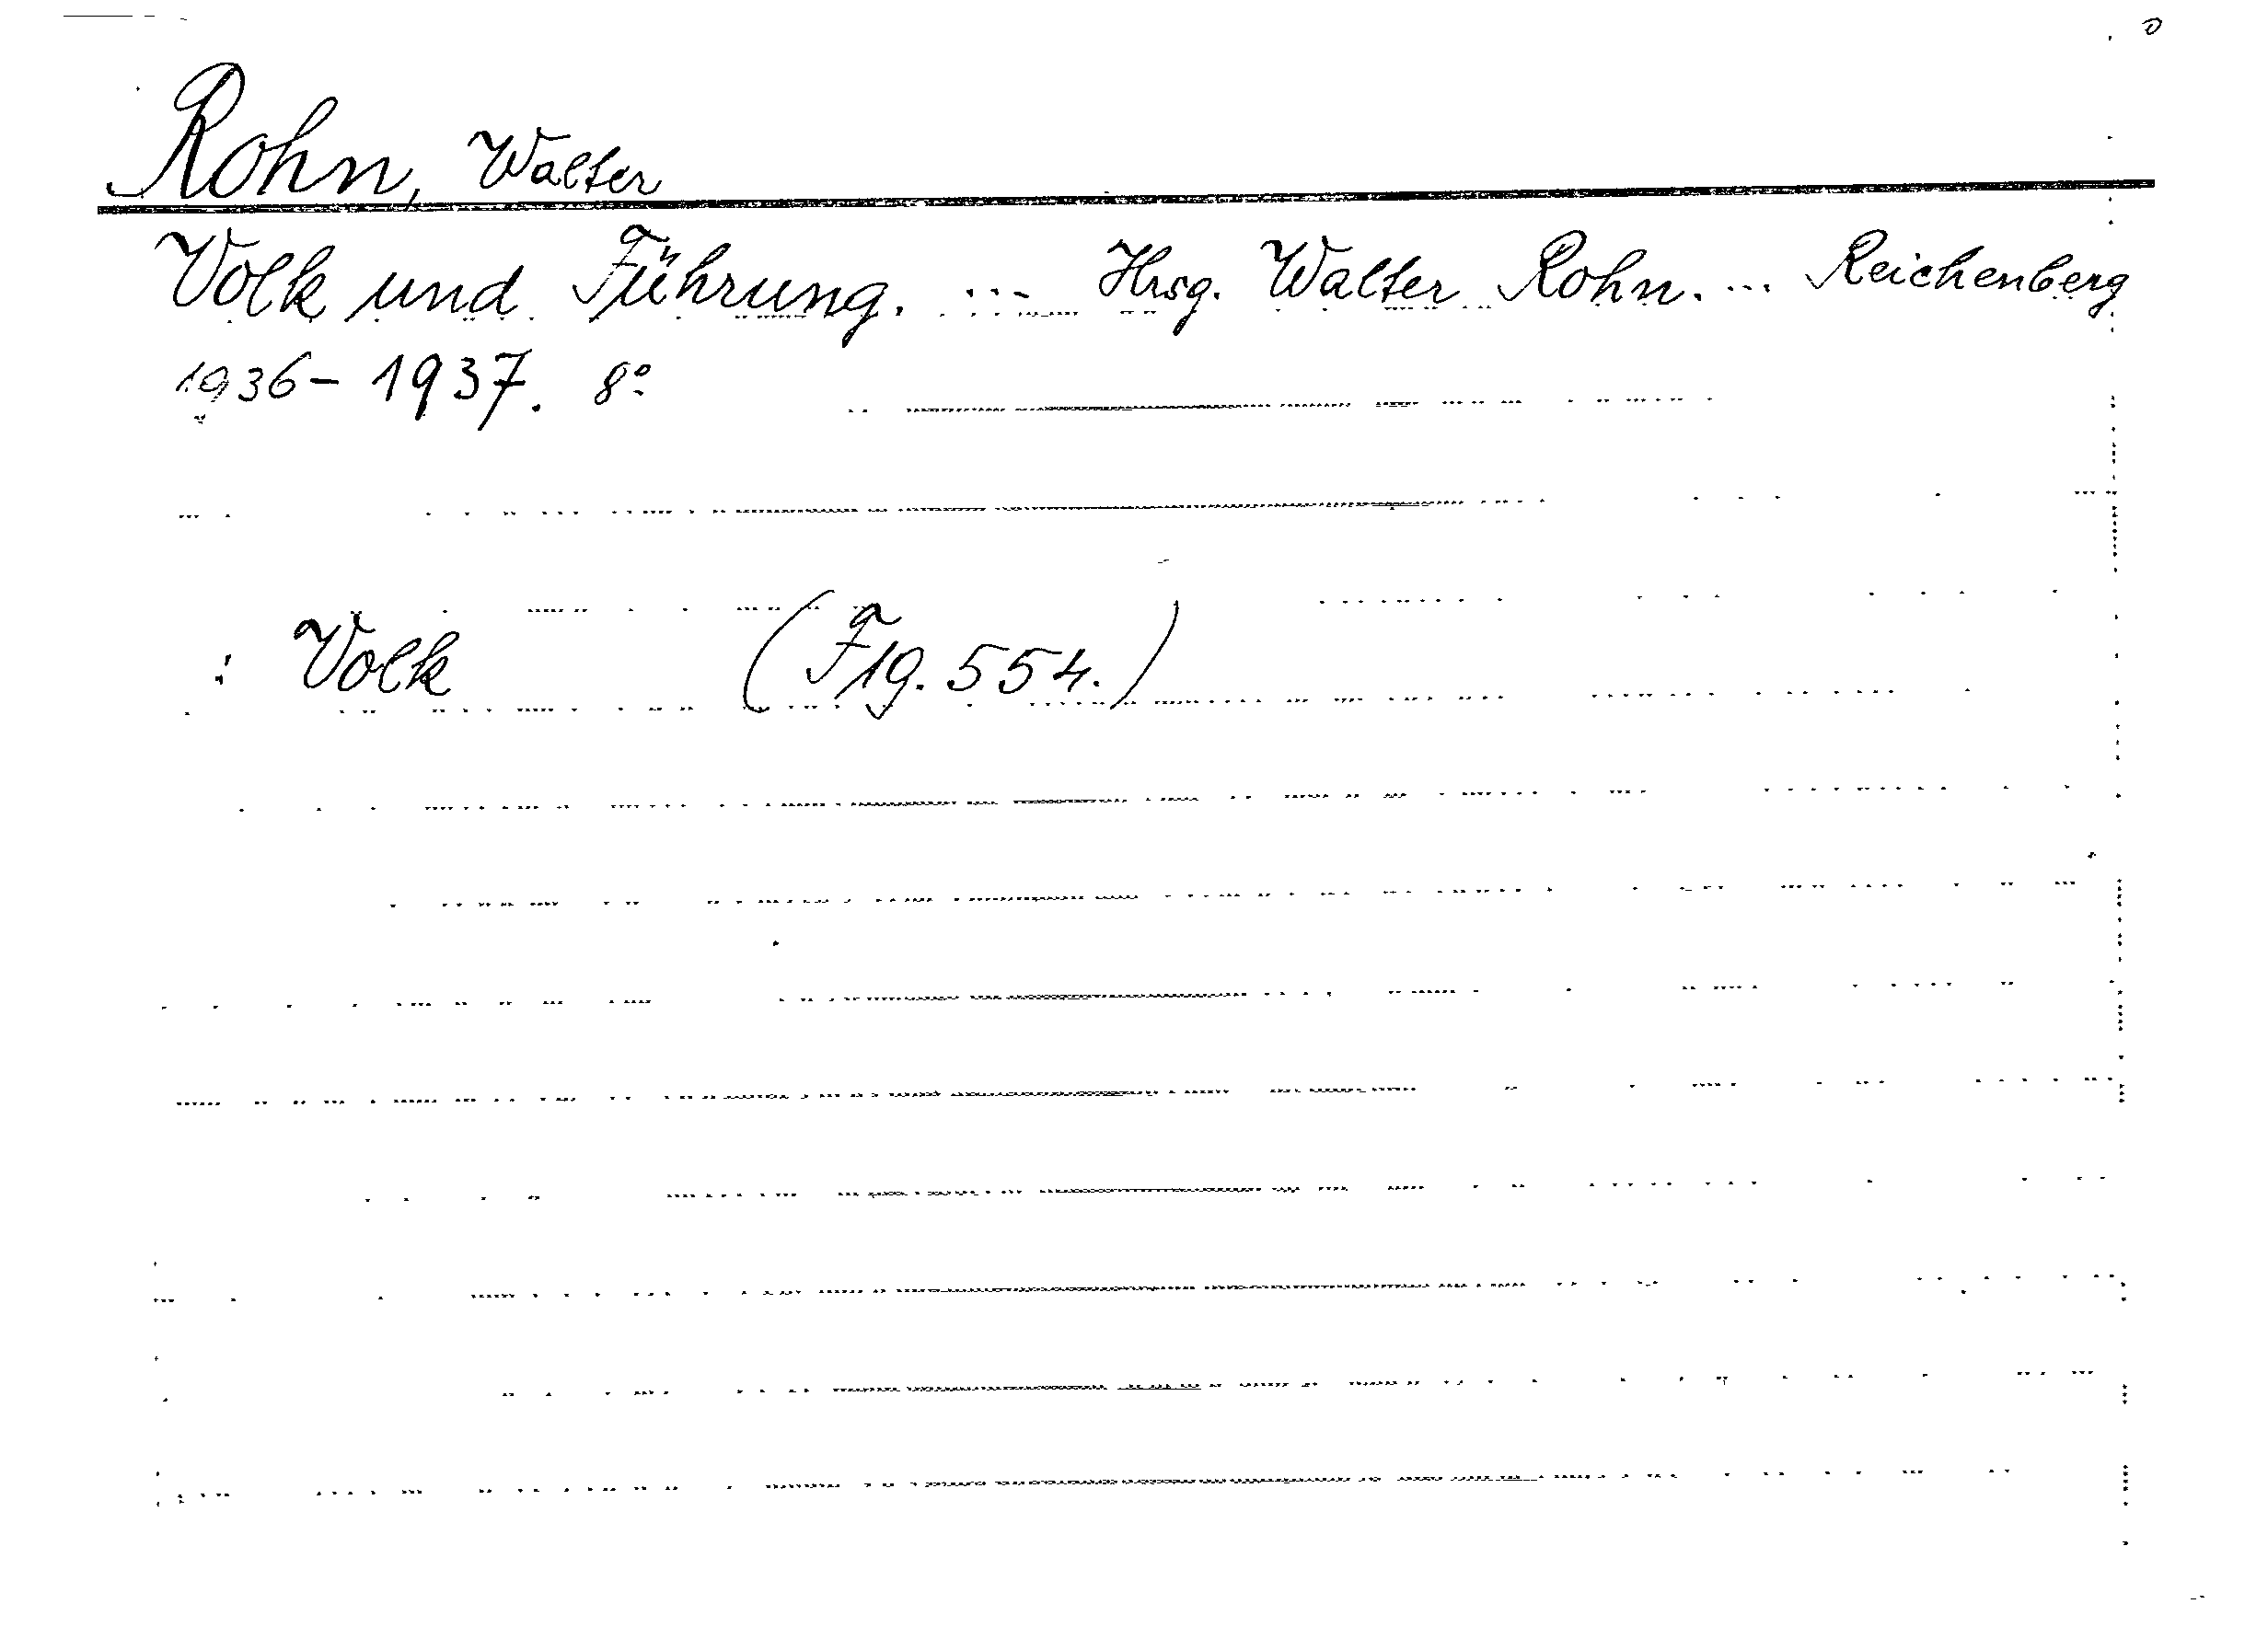 Rohn, Walter
Volk und Führung. ... Hrsg. Walter Rohn. ... Reichenberg
1936-1937. 8°
: Volk (F19.554.)